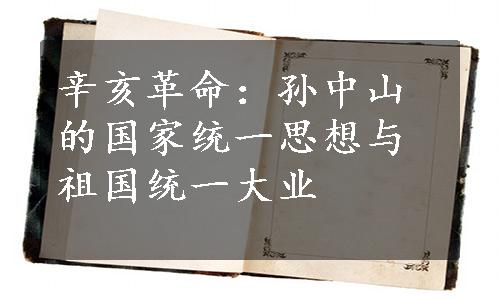 辛亥革命：孙中山
的国家统一思想与
祖国统一大业